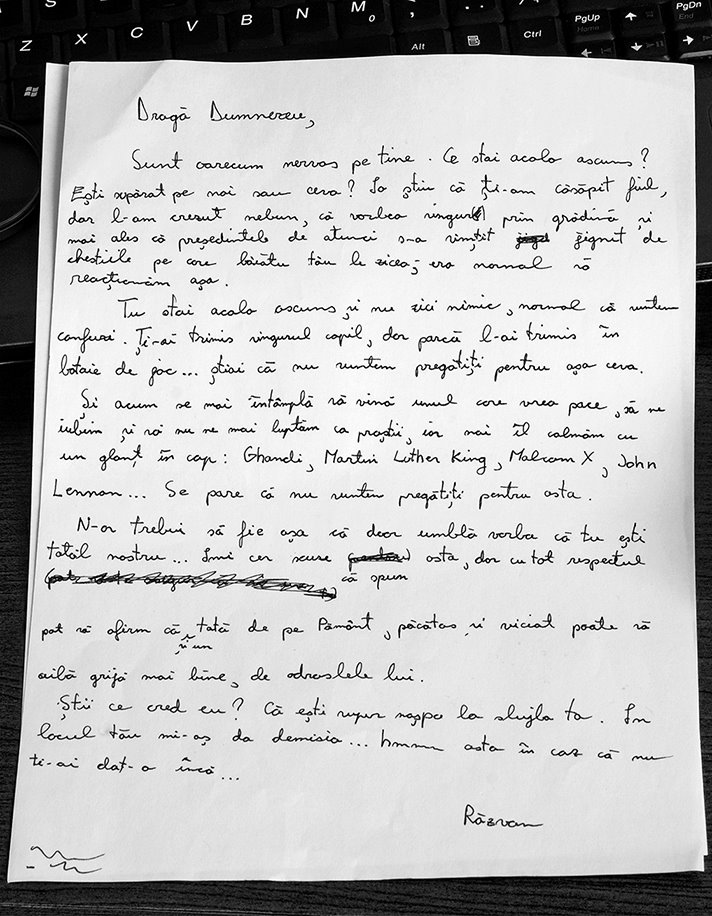 Z X C V B N M
0
; : Alt Ctrl
PgUp
Home
PgDn
End
Dragă Dumnezeu,
Sunt oarecum nervos pe tine. Ce stai acolo ascuns?
Ești supărat pe noi sau ceva? Io știu că ți-am căsăpit fiul,
dar l-am crezut nebun, că vorbea singur prin grădină și
mai ales că președintele de atunci s-a simțit jignit de
chestiile pe care băiatu tău le zicea; era normal să
reacționăm așa.
Tu stai acolo ascuns, și nu zici nimic, normal că suntem
confuzi. Ți-ai trimis singurul copil, dar parcă l-ai trimis în
bătaie de joc... știai că nu suntem pregătiți pentru așa ceva.
Și acum se mai întâmplă să vină unul care vrea pace, să ne
iubim și să nu ne mai luptăm ca proștii, iar noi îl calmăm cu
un glonț în cap: Ghandi, Martin Luther King, Malcom X, John
Lennon... Se pare că nu suntem pregătiți pentru asta.
N-ar trebui să fie așa că doar umblă vorba că tu ești
tatăl nostru... Îmi cer scuze asta, dar cu tot respectul
că spun
pot să afirm că tată de pe Pământ, păcătos și viciat poate să
și un
aibă grijă mai bine, de odraslele lui.
Știi ce cred eu? Că ești super nașpa la slujba ta. În
locul tău mi-aș da demisia... hmmm asta în caz că nu
ti-ai dat-o încă...
Răzvan